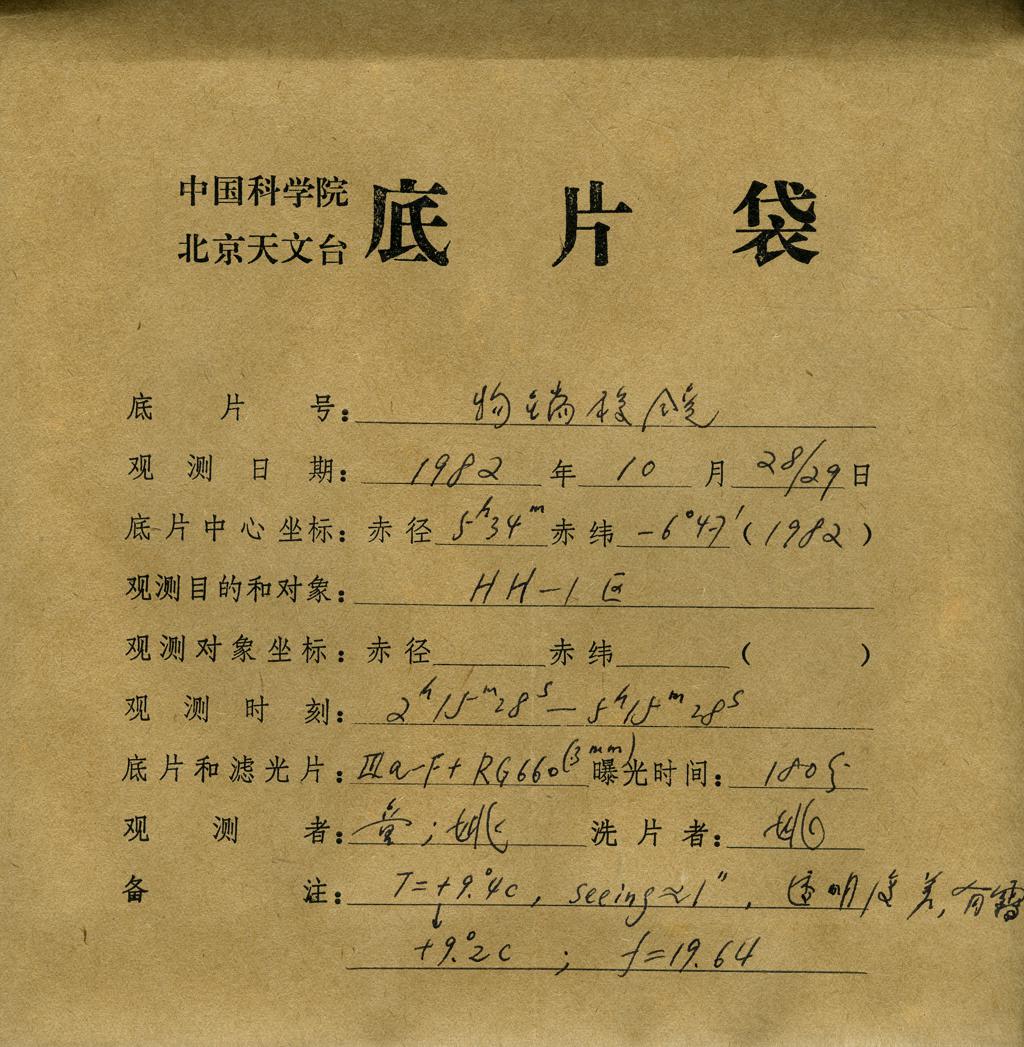 中国科学院
北京天文台 底片袋
底片号: 物端棱镜
观测日期: 1982 年 10 月 28/29 日
底片中心坐标: 赤径 5ʰ34ᵐ 赤纬 -6°47′ (1982)
观测目的和对象: HH-1 区
观测对象坐标: 赤径 赤纬 ( )
观测时刻: 2ʰ15ᵐ28ˢ — 5ʰ15ᵐ28ˢ
底片和滤光片: Ⅲa-F + RG660 (3mm) 曝光时间: 180分
观测者: ; 姚 洗片者: 姚
备注: T=+9.°4c, seeing≈1″, 透明度差, 有
↓
+9.°2c ; f=19.64